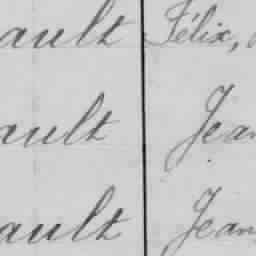 ault Félix,
ault Jean
ault Jean